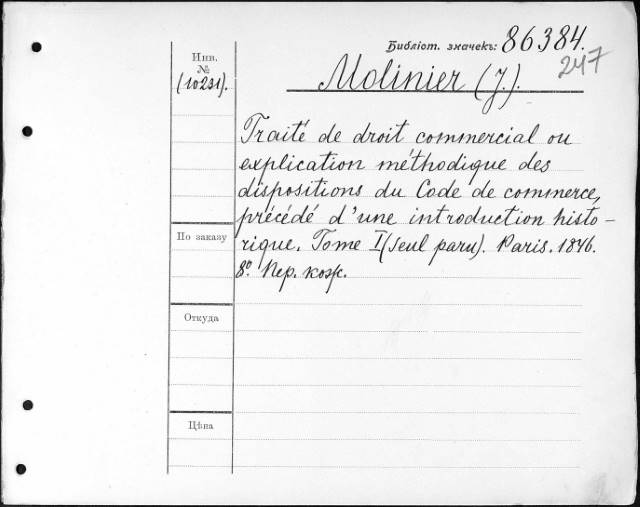 Библіот. значекъ: 86384.
247
Инв.
№
(10231).
Molinier (J.).
Traité de droit commercial ou
explication méthodique des
dispositions du Code de commerce,
précédé d'une introduction histo-
rique. Tome I (seul paru). Paris. 1846.
8º. Пер. кож.
По заказу
Откуда
Цѣна